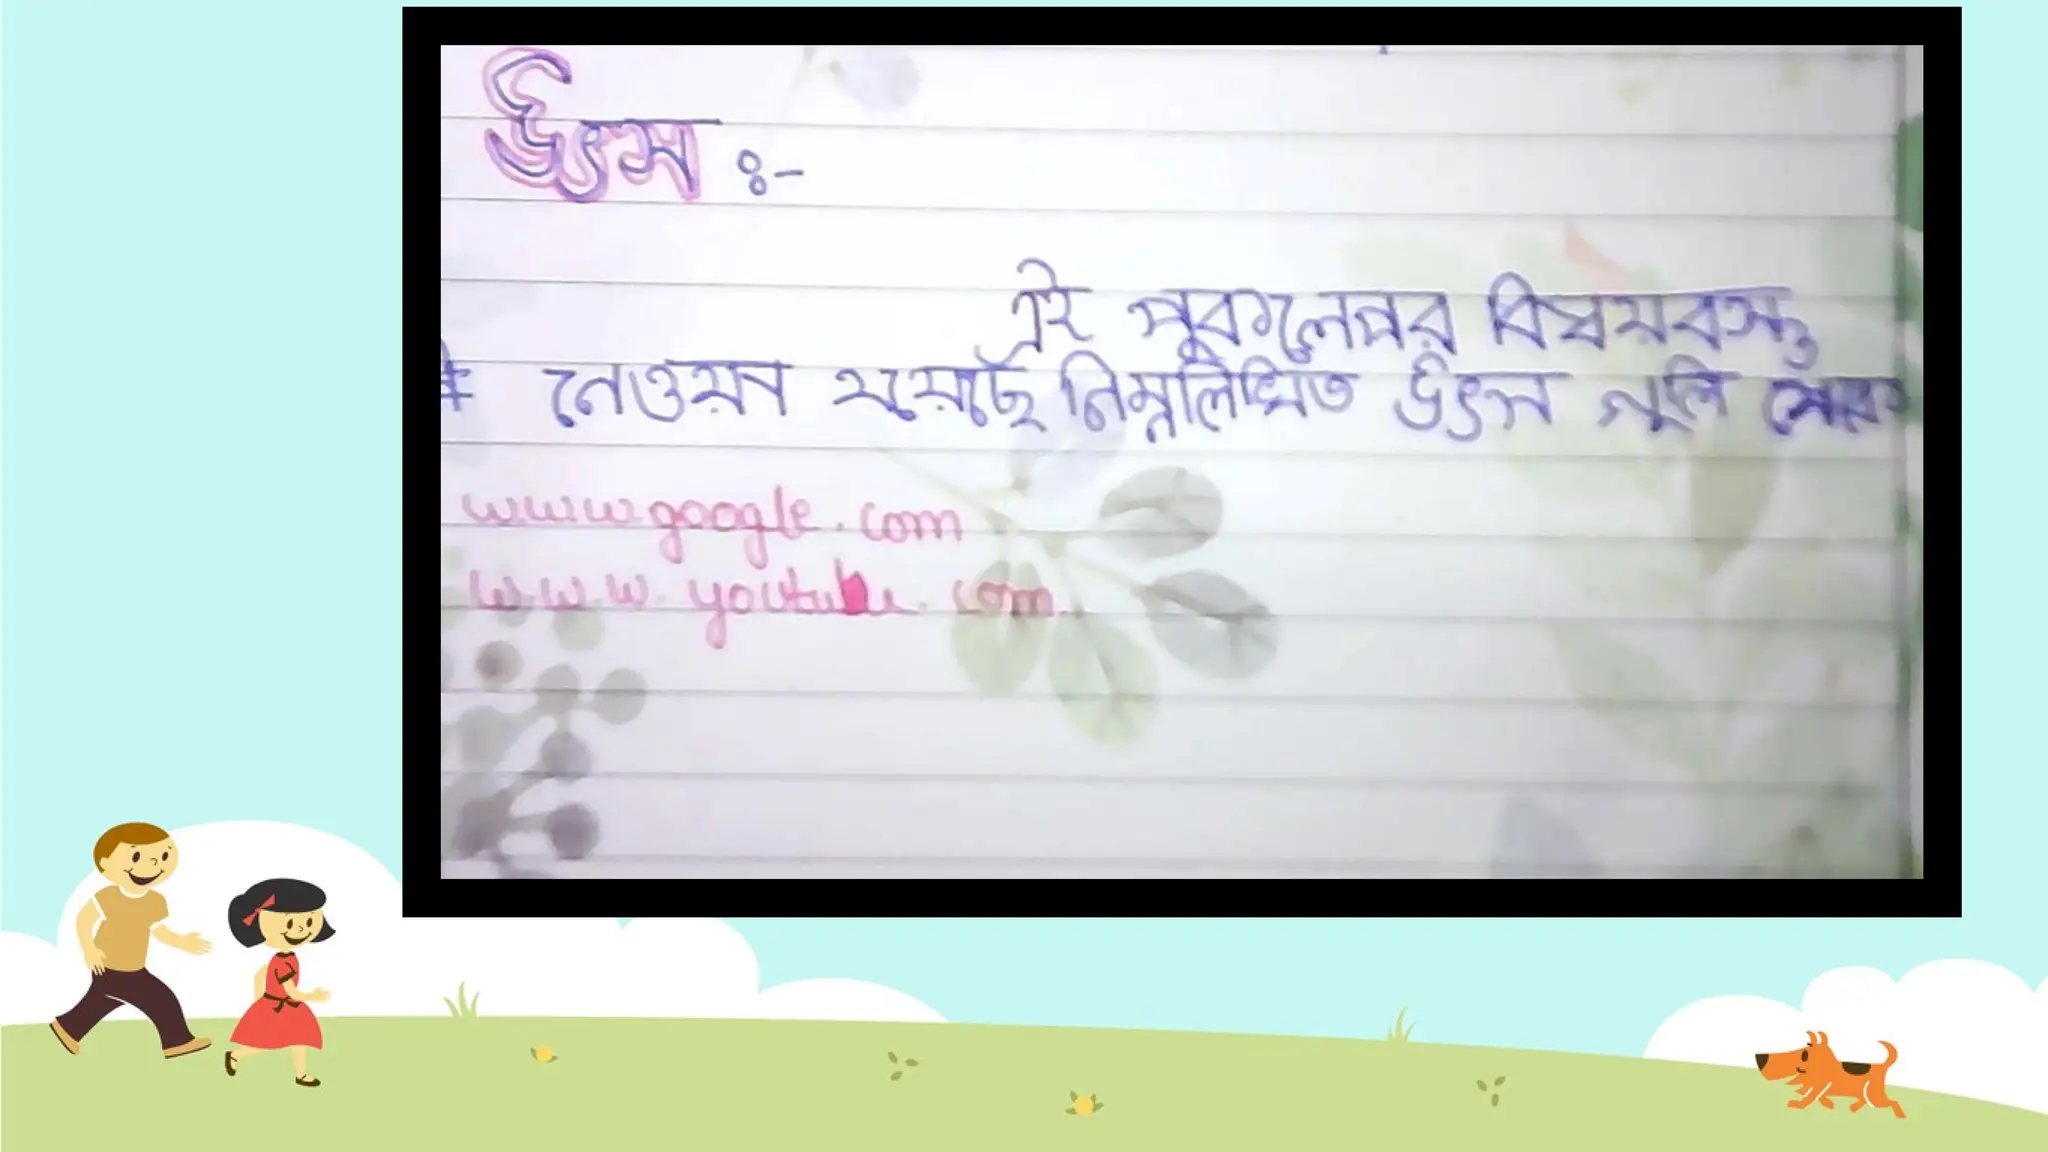 উৎস :-
এই প্রকল্পের বিষয়বস্তু
নেওয়া হয়েছে নিম্নলিখিত উৎস গুলি থেকে
www.google.com
w.w.w. youtube. com.